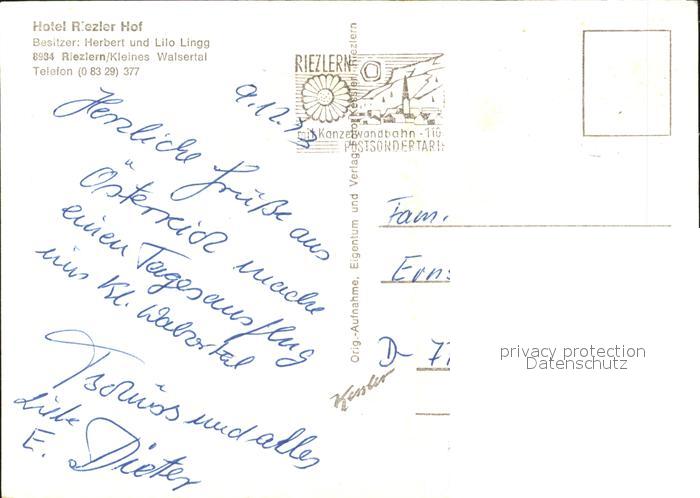 Hotel Riezler Hof
Besitzer: Herbert und Lilo Lingg
8984 Riezlern/Kleines Walsertal
Telefon (0 83 29) 377
9.12.73
Herzliche Grüße aus
Österreich mache
einen Tagesausflug
ins Kl. Walsertal
Tschüss und alles
Liebe
E. Dieter
Orig.-Aufnahme, Eigentum und Verlag Foto Kessler, Riezlern
RIEZLERN
mit Kanzelwandbahn
POSTSONDERTARIF
Fam.
Erns
D- 77
Kessler
privacy protection
Datenschutz